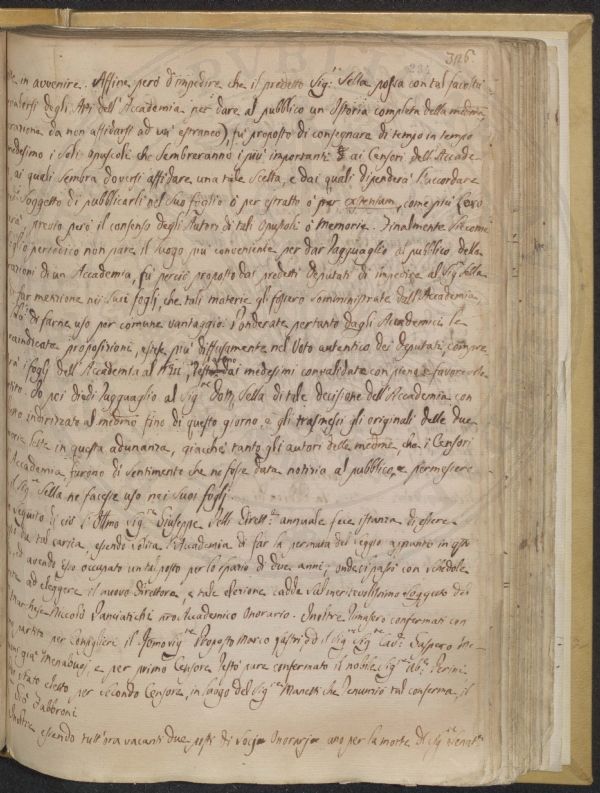 346
in avvenire. Affine però d'impedire che il predetto Sig.re Sella possa con tal facoltà
degli Atti dell'Accademia per dare al pubblico un Istoria completa della medma,
da non affidarsi ad un estraneo), fù proposto di consegnare di tempo in tempo
medesimo i soli opuscoli che sembreranno i più importanti ai Censori dell'Accade-
ai quali sembra doversi affidare una tale scelta, e dai quali dipenderà l'accordare
Soggetto di pubblicarli nel suo foglio ò per estratto ò per extensum, come più loro
previo però il consenso degli Autori di tali opuscoli ò memorie. Finalmente siccome
foglio periodico non pare il luogo più conveniente per dar ragguaglio al pubblico delle
di un Accademia, fù perciò proposto dai predetti Deputati di impedire al Sig.re Sella
far menzione nei suoi fogli, che tali materie gli fossero somministrate dall'Accademia,
di farne uso per comune vantaggio. Ponderate pertanto dagli Accademici le
preindicate proposizioni, estese più diffusamente nel Voto autentico dei Deputati, compre
i fogli dell'Accademia al restarono dai medesimi convalidate con pieno e favorevole
Io poi diedi ragguaglio al Sig.re Dott. Sella di tale decisione dell'Accademia con
indirizzato al medmo fino di questo giorno, e gli trasmessi gli originali delle due
lette in questa adunanza, giacchè tanto gli autori delle medme, che i Censori
Accademia, furono di sentimento che ne fosse data notizia al pubblico, e permesero
Sig.re Sella ne facesse uso nei suoi fogli.
seguito di ciò l'Illmo Sig.re Giuseppe Pelli Dirett.re annuale fece istanza di essere
da tal carica, essendo solita l'Accademia di far la permuta del seggio appunto in qsto
ed avendo esso occupato un tal posto per lo spazio di due anni; onde si passò con schedole
ad eleggere il nuovo Direttore, e tale elezione cadde sul meritevolissimo soggetto del
Marchese Niccolò Panciatichi proAccademico Onorario. Inoltre rimasero confermati con
partito per Consiglieri il Proposto Marco Lastri ed il Sig.re Cav. Gaspero
già Menabuoj, e per primo Censore restò pure confermato il nobile Sig.re Ab.e Perini
stato eletto per secondo Censore, in luogo del Sig.re Manetti che renunziò tal conferma, il
Gio. Fabbroni
Inoltre essendo tutt'ora vacanti due posti di Socj Onorarj uno per la morte del Sig.re